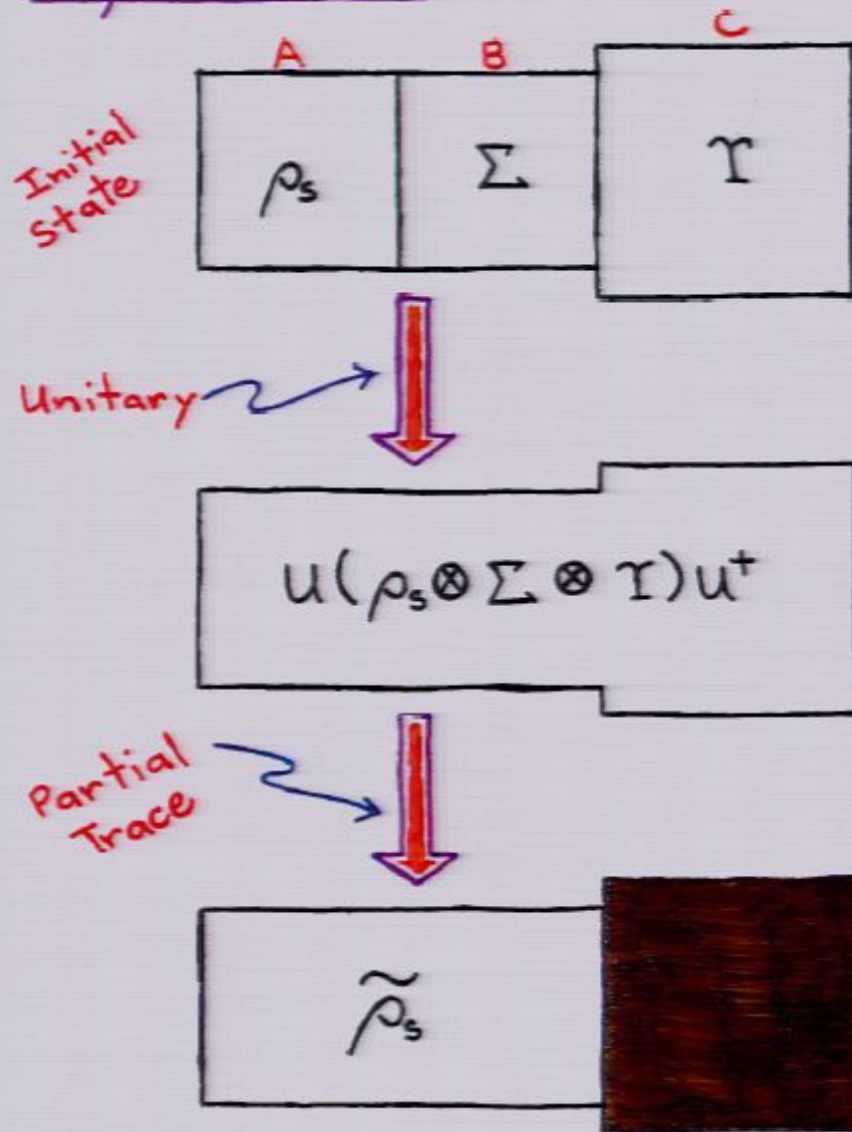 A B C
Initial State
ρₛ Σ Υ
Unitary
U(ρₛ⊗Σ⊗Υ)U†
Partial Trace
ρ̃ₛ